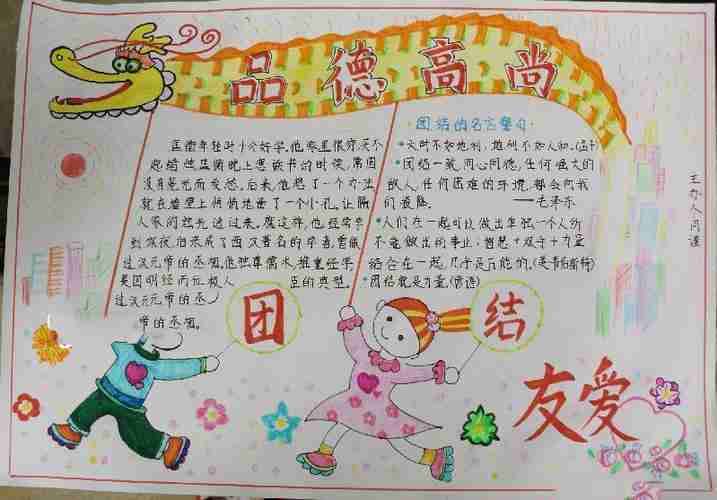 品德高尚
匡衡年轻时十分好学。他家里很穷,买不
起蜡烛,晚上想读书的时候,常因
没有亮光而发愁。后来,他想了一个办法
就在墙上悄悄地凿了一个小孔,让隔
人家的烛光透过来。就这样,他经常学
到深夜后来成了西汉著名的学者,曾做
过汉元帝的丞相。他独尊儒术,推重经学
是因明经而位极人臣的典型。
过汉元帝的丞
帝的丞相。
团结的名言警句
•天时不如地利,地利不如人和。(孟子)
•团结一致,同心同德,任何强大的
敌人,任何困难的环境,都会向我
们投降。——毛泽东
•人们在一起可以做出单独一个人所
不能做出的事业;智慧+双手+力量
结合在一起,几乎是万能的。(美韦伯斯特)
•团结就是力量(谚语)
团
结
友爱